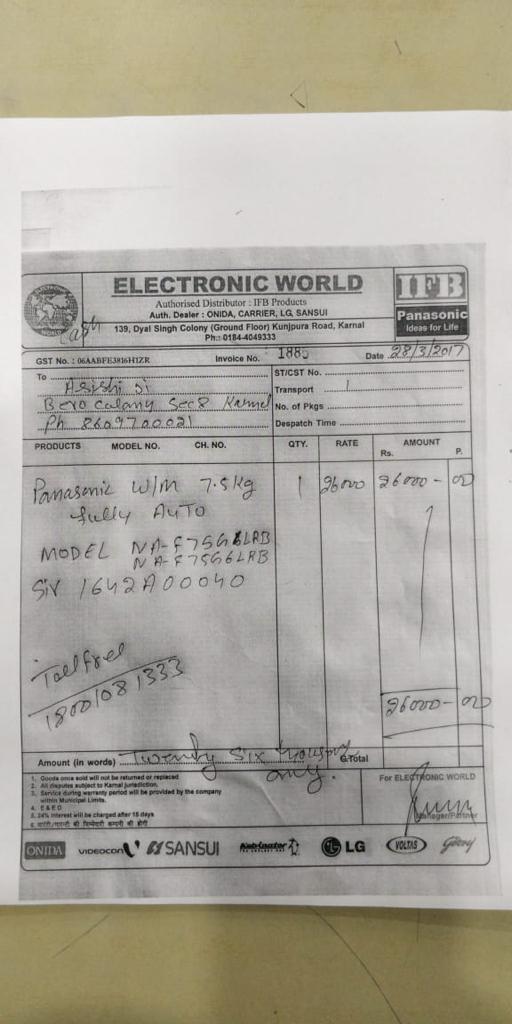 ELECTRONIC WORLD
Authorised Distributor : IFB Products
Auth. Dealer : ONIDA, CARRIER, LG, SANSUI
139, Dyal Singh Colony (Ground Floor) Kunjpura Road, Karnal
Ph.: 0184-4049333
IFB
Panasonic
Ideas for Life
Cash
GST No. : 06AABFE3816H1ZR Invoice No. 188 Date 28/3/2017
To
ST/CST No.
Transport
Sec 8 Karnal No. of Pkgs
Ph 8609700021 Despatch Time
PRODUCTS MODEL NO. CH. NO. QTY. RATE AMOUNT
Rs. P.
Panasonic W/M 7.5 kg 1 26000 26000 - 00
fully AUTO
MODEL NA-F75G6LRB
NA-F75G6LRB
1642A00040
Toll free
18001081333
26000 - 00
Amount (in words) Twenty Six G.Total
only.
1. Goods once sold will not be returned or replaced
2. All disputes subject to Karnal jurisdiction.
3. Service during warranty period will be provided by the company
within Municipal Limits.
4. E & E O
5. 24% interest will be charged after 15 days
6. वारंटी/गारन्टी की जिम्मेदारी कम्पनी की होगी
For ELECTRONIC WORLD
Manager/Partner
ONIDA VIDEOCON SANSUI Kelvinator LG VOLTAS Godrej